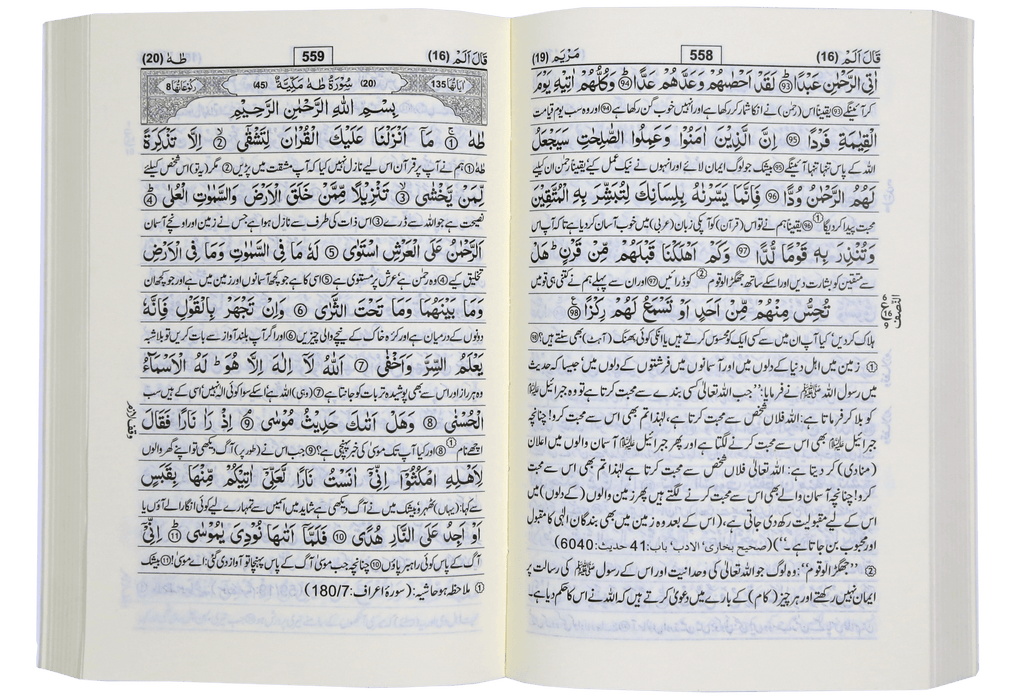 قَالَ اَلَمْ (16)
558
مَرْیَم (19)
اٰتِی الرَّحْمٰنِ عَبْدًا ﴿93﴾ لَقَدْ اَحْصٰىهُمْ وَعَدَّهُمْ عَدًّا ﴿94﴾ وَكُلُّهُمْ اٰتِیْهِ یَوْمَ
کر آئینگے ﴿93﴾ یقیناً اس (رحمٰن) نے انکا شمار کر رکھا ہے اور انہیں خوب گن رکھا ہے ﴿94﴾ اور وہ سب یوم قیامت
الْقِیٰمَةِ فَرْدًا ﴿95﴾ اِنَّ الَّذِیْنَ اٰمَنُوْا وَعَمِلُوا الصّٰلِحٰتِ سَیَجْعَلُ
اللہ کے پاس تنہا تنہا آئینگے ﴿95﴾ بیشک جو لوگ ایمان لائے اور انہوں نے نیک عمل کیے یقیناً رحمٰن ان کیلئے
لَهُمُ الرَّحْمٰنُ وُدًّا ﴿96﴾ فَاِنَّمَا یَسَّرْنٰهُ بِلِسَانِكَ لِتُبَشِّرَ بِهِ الْمُتَّقِیْنَ
محبت پیدا کر دیگا ① ﴿96﴾ یقیناً ہم نے تو اس (قرآن) کو آپکی زبان (عربی) میں خوب آسان کر دیا ہے تا کہ آپ اس
وَتُنْذِرَ بِهٖ قَوْمًا لُّدًّا ﴿97﴾ وَكَمْ اَهْلَكْنَا قَبْلَهُمْ مِّنْ قَرْنٍ ؕ هَلْ
سے متقین کو بشارت دیں اور اسکے ساتھ جھگڑالو قوم ② کو ڈرائیں ﴿97﴾ اور ان سے پہلے ہم نے کتنی ہی قومیں
تُحِسُّ مِنْهُمْ مِّنْ اَحَدٍ اَوْ تَسْمَعُ لَهُمْ رِكْزًا ﴿98﴾
ہلاک کر دیں' کیا آپ ان میں سے کسی ایک کو محسوس کرتے ہیں یا انکی کوئی بھنک (آہٹ) بھی سنتے ہیں؟ ﴿98﴾
① زمین میں اہل دنیا کے دلوں میں اور آسمانوں میں فرشتوں کے دلوں میں' جیسا کہ حدیث
میں رسول اللہ ﷺ نے فرمایا: ''جب اللہ تعالیٰ کسی بندے سے محبت کرتا ہے تو وہ جبرائیل ﷺ
کو بلا کر فرماتا ہے: اللہ فلاں شخص سے محبت کرتا ہے، لہٰذا تم بھی اس سے محبت کرو! چنانچہ
جبرائیل ﷺ بھی اس سے محبت کرنے لگتا ہے اور پھر جبرائیل ﷺ آسمان والوں میں اعلان
(منادی) کر دیتا ہے: اللہ تعالیٰ فلاں شخص سے محبت کرتا ہے لہٰذا تم بھی اس سے محبت
کرو! چنانچہ آسمان والے بھی اس سے محبت کرنے لگتے ہیں پھر زمین والوں (کے دلوں) میں
اس کے لیے مقبولیت رکھ دی جاتی ہے، (اس کے بعد وہ زمین میں بھی بندگان الٰہی کا مقبول
اور محبوب بن جاتا ہے۔'') (صحیح بخاری' الادب' باب: 41 حدیث: 6040)
② ''جھگڑالو قوم'': وہ لوگ جو اللہ تعالیٰ کی وحدانیت اور اس کے رسول ﷺ کی رسالت پر
ایمان نہیں رکھتے اور ہر چیز (کام) کے بارے میں دعویٰ کرتے ہیں کہ اللہ نے اس کا حکم دیا ہے۔
قَالَ اَلَمْ (16)
559
طٰهٰ (20)
اٰیَاتُهَا 135
(20) سُوْرَةُ طٰهٰ مَكِّیَّةٌ (45)
رُكُوْعَاتُهَا 8
بِسْمِ اللّٰهِ الرَّحْمٰنِ الرَّحِیْمِ
طٰهٰ ﴿1﴾ مَاۤ اَنْزَلْنَا عَلَیْكَ الْقُرْاٰنَ لِتَشْقٰۤی ﴿2﴾ اِلَّا تَذْكِرَةً
طٰہٰ ﴿1﴾ ہم نے آپ پر قرآن اس لیے نازل نہیں کیا کہ آپ مشقت میں پڑیں ﴿2﴾ مگر (یہ تو) اس شخص کیلئے
لِّمَنْ یَّخْشٰی ﴿3﴾ تَنْزِیْلًا مِّمَّنْ خَلَقَ الْاَرْضَ وَالسَّمٰوٰتِ الْعُلٰی ﴿4﴾
نصیحت ہے جو اللہ سے ڈرے ﴿3﴾ اس ذات کی طرف سے نازل ہوا ہے جس نے زمین اور اونچے آسمان
اَلرَّحْمٰنُ عَلَی الْعَرْشِ اسْتَوٰی ﴿5﴾ لَهٗ مَا فِی السَّمٰوٰتِ وَمَا فِی الْاَرْضِ
تخلیق کیے ﴿4﴾ وہ رحمٰن ہے عرش پر مستوی ہے ﴿5﴾ اسی کا ہے جو کچھ آسمانوں اور زمین میں ہے اور جو کچھ ان
وَمَا بَیْنَهُمَا وَمَا تَحْتَ الثَّرٰی ﴿6﴾ وَاِنْ تَجْهَرْ بِالْقَوْلِ فَاِنَّهٗ
دونوں کے درمیان ہے اور کرۂ خاک کے نیچے والی چیزیں ﴿6﴾ اور اگر آپ بلند آواز سے بات کریں تو بلاشبہ
یَعْلَمُ السِّرَّ وَاَخْفٰی ﴿7﴾ اَللّٰهُ لَاۤ اِلٰهَ اِلَّا هُوَ ؕ لَهُ الْاَسْمَآءُ
وہ ہر راز اور اس سے بھی پوشیدہ تر بات کو جانتا ہے ﴿7﴾ (وہی) اللہ ہے! اسکے سوا کوئی الٰہ نہیں' اسی کے ہیں سب
الْحُسْنٰی ﴿8﴾ وَهَلْ اَتٰىكَ حَدِیْثُ مُوْسٰی ﴿9﴾ اِذْ رَاٰ نَارًا فَقَالَ
اچھے نام ① ﴿8﴾ اور کیا آپ تک موسیٰ کی خبر پہنچی ہے؟ ﴿9﴾ جب اس نے (طور پر) آگ دیکھی تو اپنے گھر والوں
لِاَهْلِهِ امْكُثُوْۤا اِنِّیْۤ اٰنَسْتُ نَارًا لَّعَلِّیْۤ اٰتِیْكُمْ مِّنْهَا بِقَبَسٍ
سے کہا: (یہاں) ٹھہرو بیشک میں نے آگ دیکھی ہے شاید میں اسمیں سے تمہارے لیے کوئی انگارا لے آؤں یا
اَوْ اَجِدُ عَلَی النَّارِ هُدًی ﴿10﴾ فَلَمَّاۤ اَتٰىهَا نُوْدِیَ یٰمُوْسٰی ﴿11﴾ اِنِّیْۤ
آگ کے پاس کوئی راہبر پاؤں ﴿10﴾ چنانچہ جب موسیٰ آگ کے پاس پہنچا تو آواز دی گئی: اے موسیٰ! ﴿11﴾ بیشک
① ملاحظہ ہو حاشیہ: (سورۂ اعراف: 180/7)